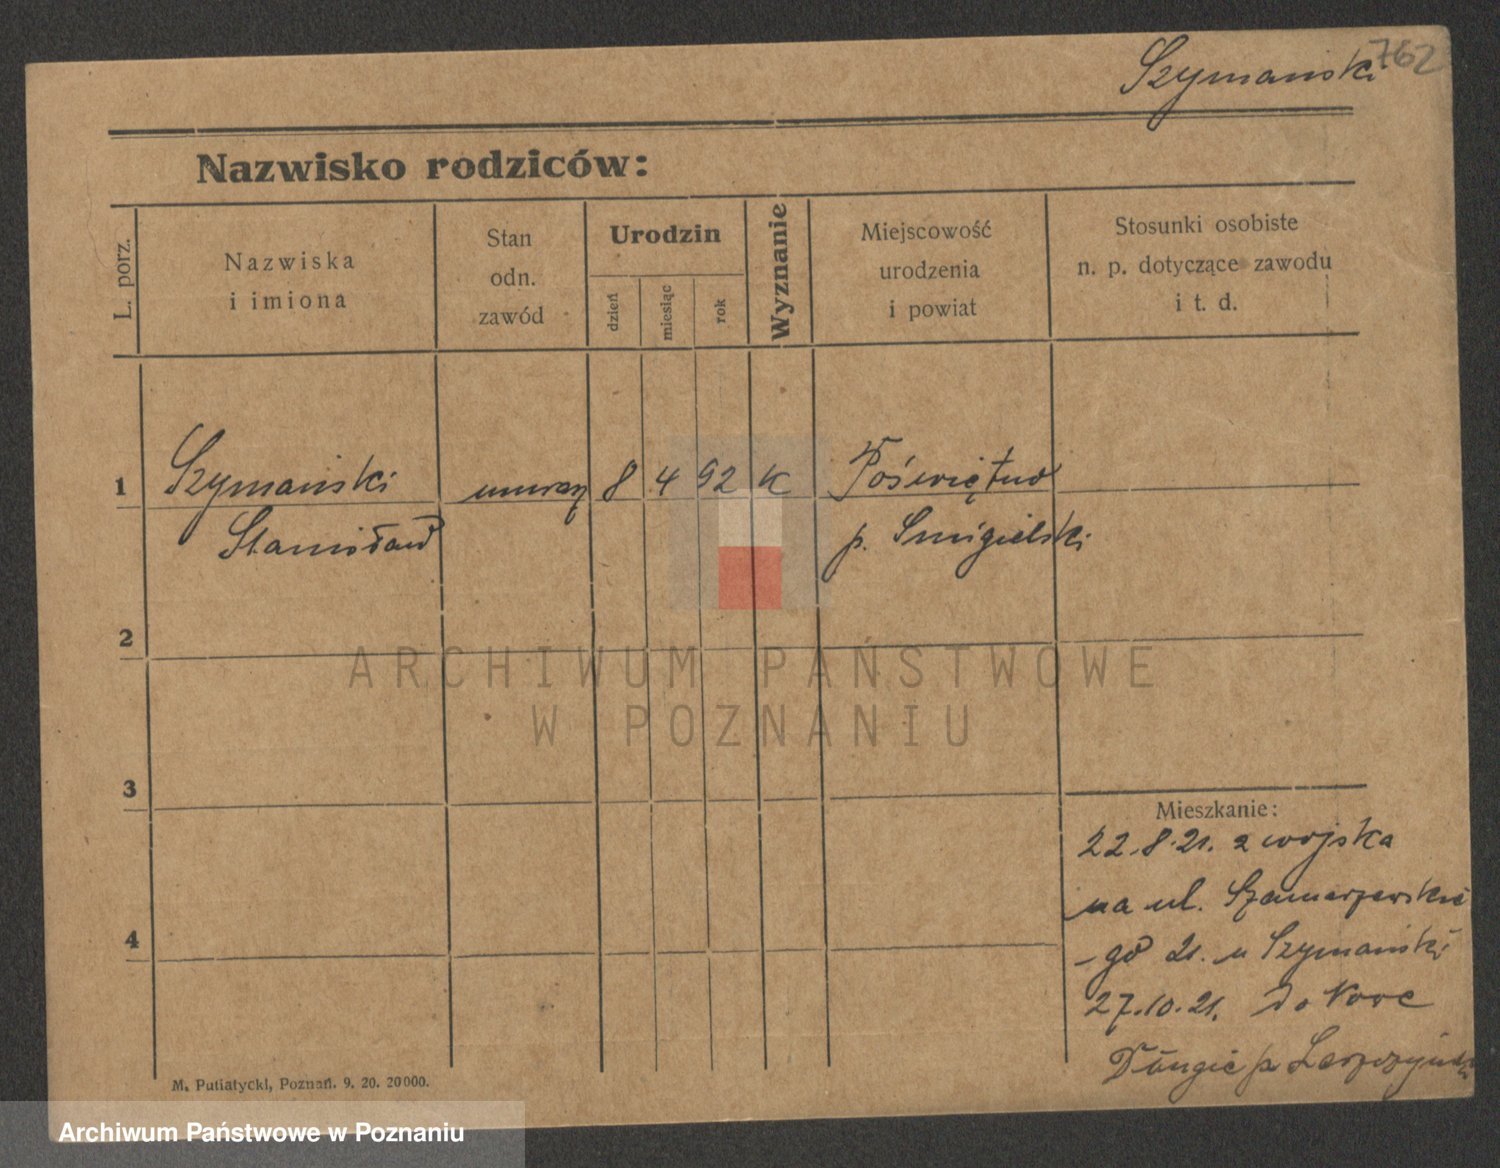 Szymański 762
Nazwisko rodziców:
L. porz.
Nazwiska
i imiona
Stan
odn.
zawód
Urodzin
dzień
miesiąc
rok
Wyznanie
Miejscowość
urodzenia
i powiat
Stosunki osobiste
n. p. dotyczące zawodu
i t. d.
1 Szymański 8 4 92 K Poświętno
Stanisław p. Śmigielski
2
3
4
ARCHIWUM PAŃSTWOWE
W POZNANIU
Mieszkanie:
22.8.21. z wojska
na ul. Szamarzewskie
-go 21. u Szymański
27.10.21. do
M. Putiatycki, Poznań. 9. 20. 20000.
Archiwum Państwowe w Poznaniu